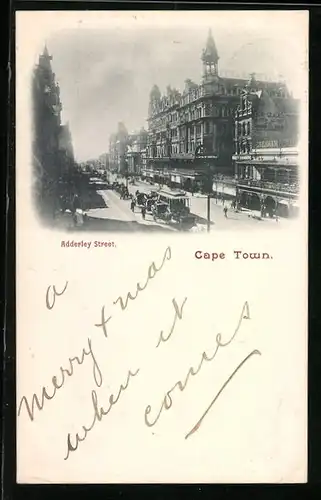 Adderley Street.
Cape Town.
a
merry + mas
when it
comes